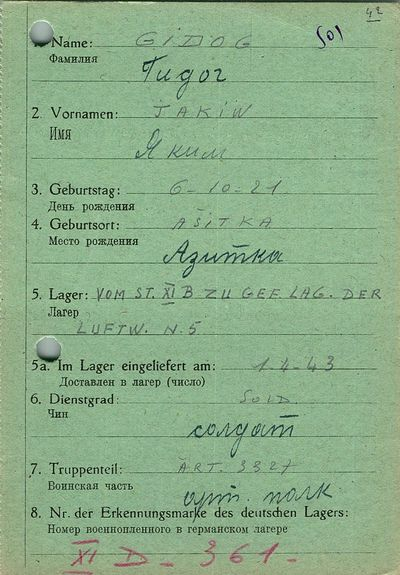 42
501
1. Name: GIDOG
Фамилия Гидог
2. Vornamen: JAKIW
Имя Яким
3. Geburtstag: 6-10-21
День рождения
4. Geburtsort: AŠITKA
Место рождения Азитка
5. Lager: VOM ST. XI B ZU GEF. LAG. DER
Лагер LUFTW. N. 5
5a. Im Lager eingeliefert am: 1-4-43
Доставлен в лагер (число)
6. Dienstgrad: SOLD.
Чин солдат
7. Truppenteil: ART. 3327
Воинская часть арт. полк
8. Nr. der Erkennungsmarke des deutschen Lagers:
Номер военнопленного в германском лагере
XI D - 361 -